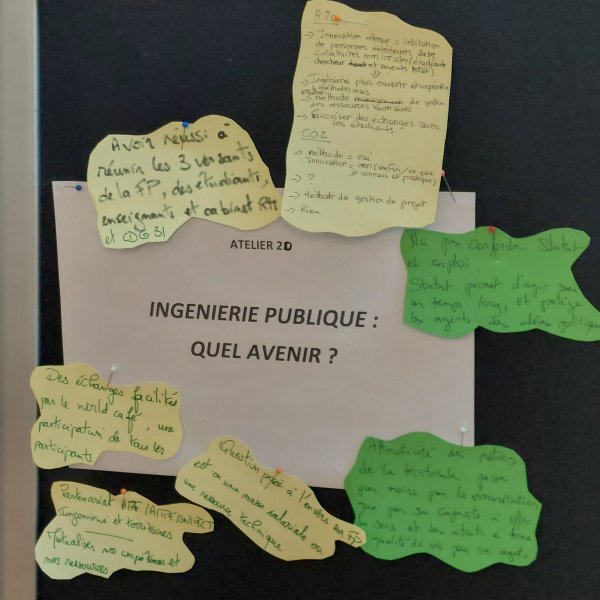 → Innovation relevée = invitation
de personnes extérieures, autre
collectivités territoriales (étudiants
chercheur et agents état)
→ Ingénierie plus ouverte
méthodes mais
→ méthode management de gestion
des ressources humaines
→ Favoriser des échanges avec
les étudiants
CO2
→ méthode = oui
innovation = non (enfin / ce que
je connais et pratique)
→ ?
→ Méthode de gestion de projet
→ Rien
Avoir réussi à
réunir les 3 versants
de la FP, des étudiants,
enseignants et cabinet RH
et CDG 31
ATELIER 2D
INGENIERIE PUBLIQUE :
QUEL AVENIR ?
Ne pas confondre Statut
et emploi
Statut permet d'agir sur
un temps long, et protège
les agents des aléas politiques
Des échanges facilités
par le world café, une
participation de tous les
participants
Question posée à l'envers sur FP
est-on une masse salariale ou
une ressource technique
Partenariat
ingénierie et territoires
Mutualiser nos compétences et
nos ressources
Attractivité des métiers
de la territoriale passe
par moins par la rémunération
que par sa capacité à offrir
du sens et des
qualité de vie pour ses agents